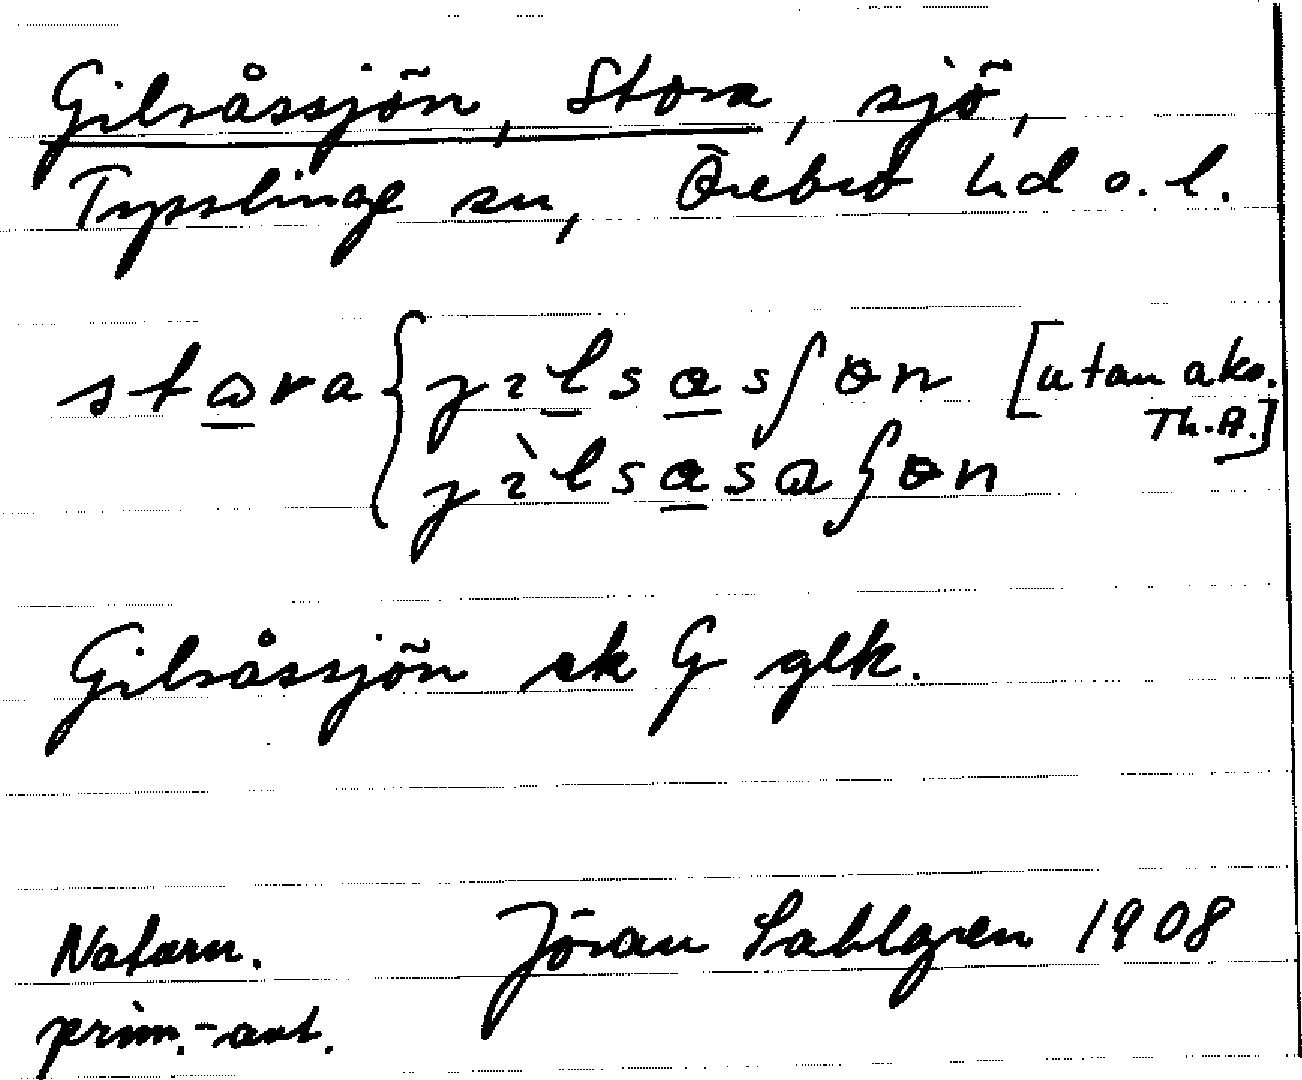 Gilsåssjön, Stora, sjö,
Tysslinge sn, Örebro hd o. l.
stωra { jılsasʃɵn [utan akc.
Th. A.]
jìlsasaʃɵn
Gilsåssjön ek G glk.
Naturn. Jöran Sahlgren 1908
prim.-ant.